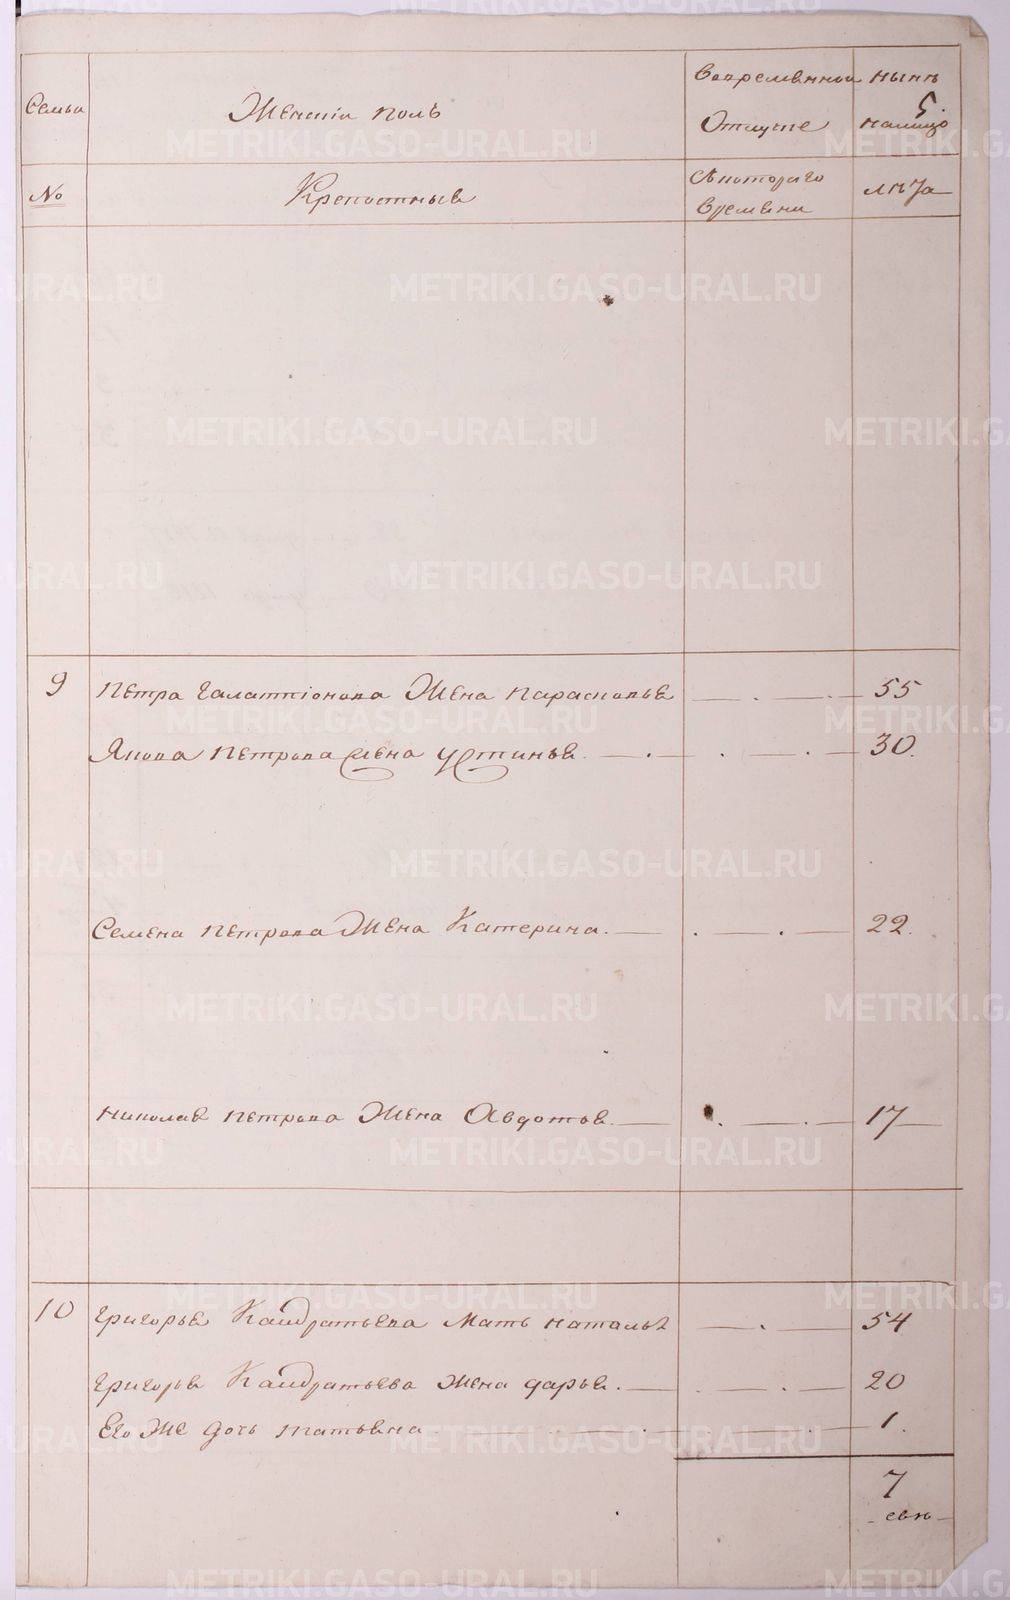 Семьи
Женскій полъ
Вовременной
Отлучке
ныне
5.
налицо
№
Крепостные
Скотораго
времени
лета
9 Петра Галактіонова Жена Парасковье 55
Якова Петрова Жена Устинье 30.
Семена Петрова Жена Катерина. 22.
Николае Петрова Жена Авдотье. 17
10 Григорье Кандратьева Мать Наталье 54
Григорье Кандратьева жена дарье. 20
Его же дочь татьяна. 1.
7
METRIKI.GASO-URAL.RU